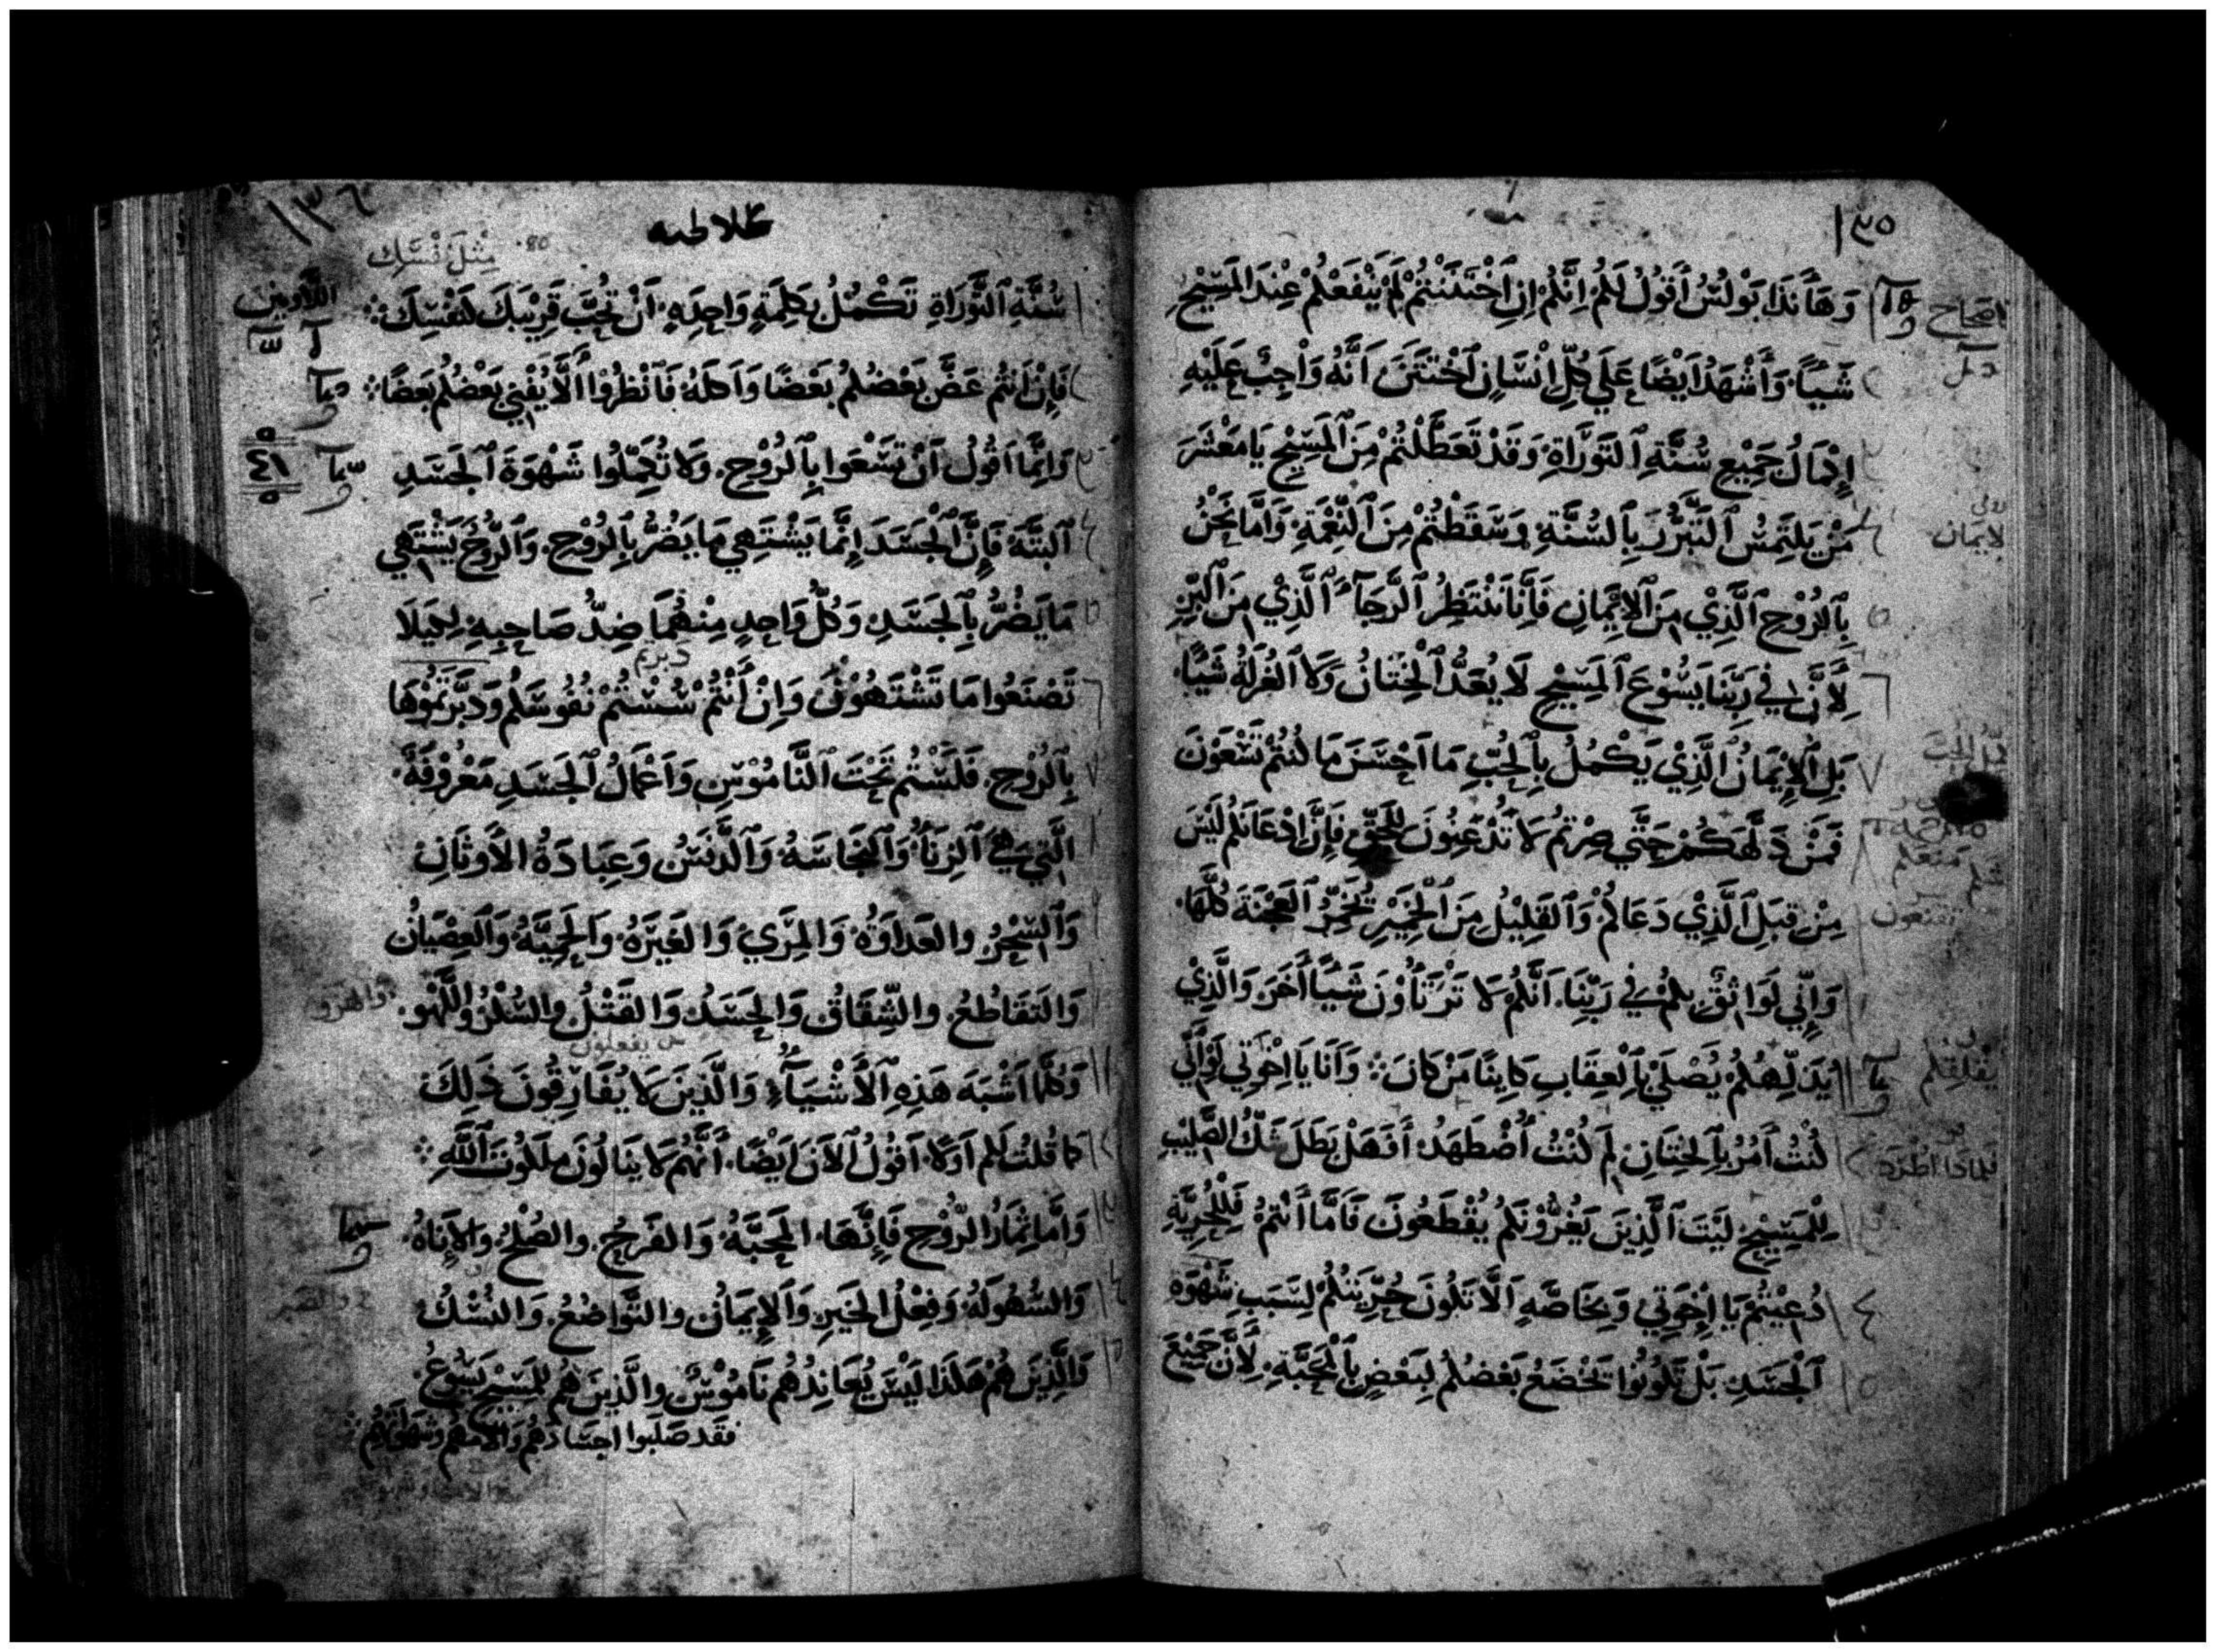 ١٣٥
وَهَأَنَذَا بَوْلُسُ أَقُولُ لَكُمْ اِنَّكُمْ اِنِ ٱخْتَتَنْتُمْ لَمْ يَنْفَعْكُمْ عِنْدَ المَسِيْحِ
اصحاح
شَيْئًا وَأَشْهَدُ اَيْضًا عَلَي كُلِّ اِنْسَانٍ ٱخْتَتَنَ اَنَّهُ وَاْجِبٌ عَلَيْهِ
إِكْمَالُ جَمِيْعِ سُنَّةِ ٱلتَّوْرَاةِ وَقَدْ تَعَطَّلْتُمْ مِنَ ٱلْمَسِيْحِ يَا مَعْشَرَ
مَنْ يَلتَمِسُ ٱلتَّبَرُّرَ بِٱلسُّنَّةِ وَسَقَطْتُمْ مِنَ ٱلنِّعْمَةِ وَاَمَّا نَحْنُ
لايمَان
بِٱلرُوْحِ ٱلَّذِيْ مِنَ ٱلاِيْمَانِ فَاِنَّا نَنْتَظِرُ ٱلرَّجَآءَ ٱلَّذِيْ مِنَ ٱلْبِرِّ
لِأَنَّ فِي رَبِّنَا يَسُوْعَ ٱلمَسِيْحِ لَا يُعَدُّ ٱلْخِتَانُ وَلَا ٱلغُرلَةُ شَيْئًا
بَلِ ٱلْإِيْمَانُ ٱلَّذِيْ يَكْمُلُ بِٱلْحُبِّ مَا اَحْسَنَ مَا كُنْتُمْ تَسْعَوْنَ
فَمَنْ دَلَّهَكُمْ حَتَّي صِرْتُمْ لَا تُذْعِنُونَ لِلْحَقِّ فَاِنَّ اِدْعَانَكُمْ لَيْسَ
مِنْ قِبَلِ ٱلَّذِيْ دَعَاكُمْ وَٱلقَلِيْلُ مِنَ ٱلْخَمِيْرِ يُخَمِّرُ ٱلعَجْنَةَ كُلَّهَا
تقنعون
وَاِنِّي لَوَاثِقٌ بِكُمْ فِي رَبِّنَا اَنَّكُمْ لَا تَرْتَأُوْنَ شَيْئًا أَخَرَ وَالَّذِيْ
يُدَلِّهُكُمْ يُصْلَيٰ بِٱلْعِقَابِ كَايِنًا مَنْ كَانَ وَاَنَا يَا اِخْوَتِي لَوْ اَنِّي
يقلقكم
كُنْتُ أَمُرُ بِٱلخِتَانِ لِمَ كُنْتُ أُضْطَهَدُ أَفَهَلْ بَطَلَ شَكُّ الصَّلِيْبِ
فلماذا اطرد
لِلْمَسِيْحِ لَيْتَ ٱلَّذِيْنَ يَغُرُّوْنَكُمْ يُقْطَعُونَ فَاَمَّا اَنْتُمْ فَلِلْحُرِيَّةِ
دُعِيْتُمْ يَا اِخْوَتِي وَبِخَاصَّةٍ اَلَّا تَكُونَ حُرِّيَتُكُمْ لِسَبَبِ شَهْوَةِ
ٱلْجَسَدِ بَلْ تَكُونُوا يَخْضَعُ بَعْضُكُمْ لِبَعْضٍ بِٱلْمَحَبَّةِ لِأَنَّ جَمِيْعَ
١٣٦
غلاطيه
مِثْلَ نَفْسَكِ
سُنَّةِ ٱلتَّوْرَاةِ تَكْمُلُ بِكَلِمَةٍ وَاحِدَةٍ اَنْ تُحِبَّ قَرِيْبَكَ كَنَفْسِكَ
اللاويين
فَإِنْ كَانَ كُنتُمْ عَضَّ بَعْضُكُمْ بَعْضًا وَاَكَلَهُ فَٱنْظُرُوْا أَلَّا يُفْنِي بَعْضُكُمْ بَعْضًا
وَاِنَّمَا اَقُوْلُ اَنْ تَسْعَوا بِٱلرُوْحِ وَلَا تُكَمِّلُوا شَهْوَةَ ٱلْجَسَدِ
٤١
ٱلبَتَّةَ فَإِنَّ ٱلْجَسَدَ اِنَّمَا يَشْتَهِي مَا يَضُرُّ بِٱلرُوْحِ وَٱلرُّوْحَ يَشْتَهِي
مَا يَضُرُّ بِٱلجَسَدِ وَكُلُّ وَاحِدٍ مِنْهُمَا ضِدُّ صَاحِبِهِ لِكَيْلَا
دبرتم
تَصْنَعُوا مَا تَشْتَهُوْنَ وَاِنْ أَنْتُمْ سُسْتُمْ نُفُوسَكُمْ وَدَبَّرْتُمُوْهَا
بِٱلرُوْحِ فَلَسْتُمْ تَحْتَ ٱلنَّامُوْسِ وَاَعْمَالُ ٱلجَسَدِ مَعْرُوْفَةٌ
الَّتِي هِيَ ٱلزِنَاْ وَٱلنَّجَاسَةُ وَٱلدَّنَسُ وَعِبَادَةُ الأَوثَانِ
وَٱلسِّحْرُ والعَدَاوَةُ وَالمِرَيُ وَالغَيْرَةُ وَالحَمِيَّةُ وَٱلعِصْيَانُ
وَالتَقَاطُعُ والشِّقَاقُ وَالحَسَدُ وَالقَتْلُ والسُكْرُ وَاللَّهْوُ
يفعلون
وَكُلَّمَا اَشْبَهَ هَذِهِ ٱلاَشْيَآءِ وَالَّذِيْنَ لَا يُفَارِقُونَ ذَلِكَ
كَمَا قُلتُ لَكُم اَوَّلًا اَقُوْلُ ٱلاَنَ اَيْضًا أَنَّهُمْ لَا يَنَالُونَ مَلَكُوتَ ٱللَّهِ
وَاَمَّا ثِمَارُ الرُّوْحِ فَإِنَّهَا المَحَبَّةُ وَالفَرَحُ والصُلْحُ وَالاَنَاةُ
وَالسُهُولَةُ وَفِعْلُ الخَيْرِ وَٱلاِيمَانُ والتَّوَاضُعُ وَالنُسْكُ
وَالَّذِيْنَ هُمْ هَكَذَا لَيْسَ يُعَانِدُهُمْ نَامُوْسٌ والَّذِيْنَ هُمْ لِلْمَسِيْحِ يَسُوْعَ
فَقَد صَلَبُوا اجسَادَهُم وَآلامَهُم وشَهَوَاتِهُم